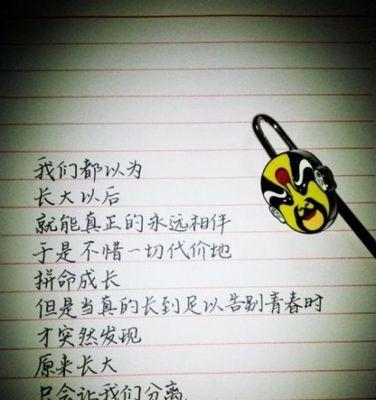 我们都以为
长大以后
就能真正的永远相伴
于是不惜一切代价地
拼命成长
但是当真的长到足以告别青春时
才突然发现
原来长大
只会让我们分离